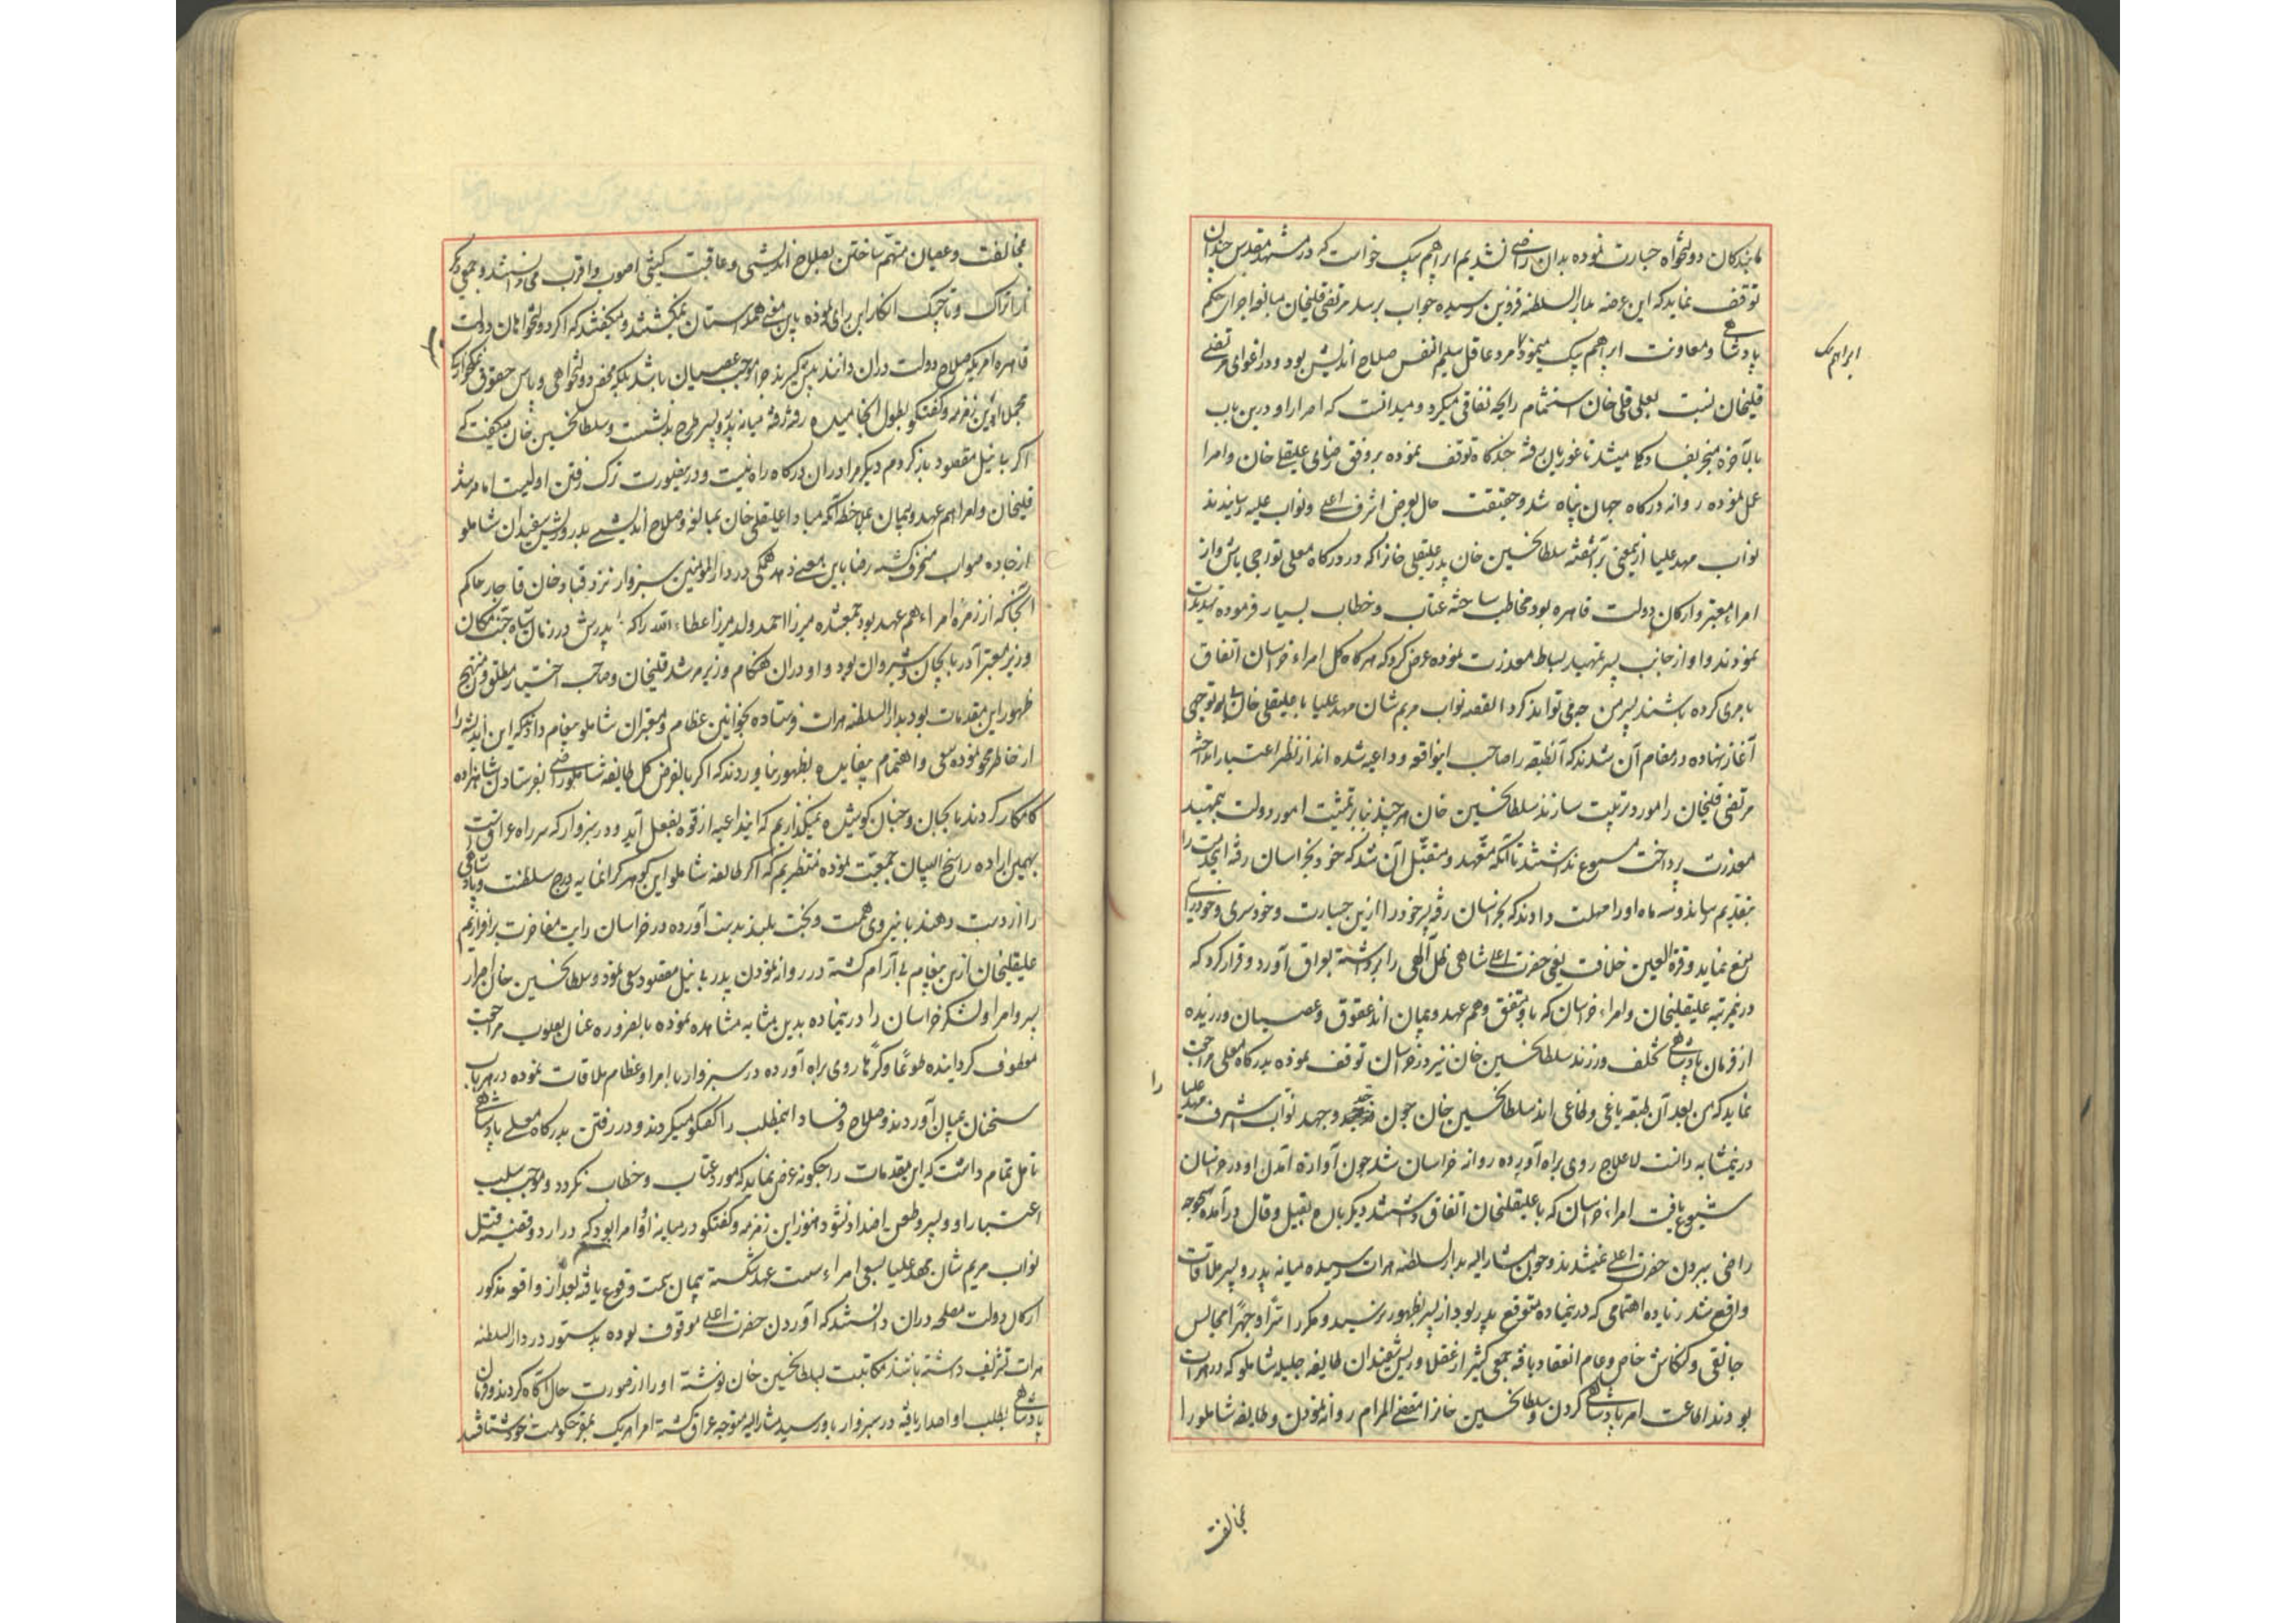 ما بندگان دولتخواه جسارت نموده بدان راضی نشدیم ابراهیم بیک خواست که در مشهد مقدس چندان
توقف نماید که این عرضه بدار السلطنه قزوین رسیده جواب برسد مرتضی قلیخان مبالغه اجرار حکم
پادشاهی و معاونت ابراهیم بیک مینمود مرد عاقل سلیم النفس صلاح اندیش بود و در اغوای مرتضی
ابراهیم بیک
قلیخان نسبت بعلی قلی خان استشمام رایحه نفاقی میکرد و میدانست که اصرار او درین باب
بالاخره منجر بفساد میشد تا غوریان رفته چندگاه توقف نموده بر وفق رضای علیقلی خان و امرا
عمل نموده روانه درکاه جهان پناه شد و حقیقت حال بعرض اشرف اعلی و نواب علیه رسانیدند
نواب مهد علیا ازیمعنی برآشفته سلطان حسین خان پدر علیقلی خان را که در درکاه معلی بود
امراء معتبر و ارکان دولت قاهره بود مخاطب ساخته عتاب و خطاب بسیار فرموده تهدیدات
نمودند و او از جانب پسر تمهید بساط معذرت نموده عرض کرد که هر کاه کل امراء خراسان اتفاق
بامری کرده باشند پسر من چه می تواند کرد القصه نواب مریم شان مهد علیا با علیقلی خان بی توجهی
آغاز نهاده در مقام آن شدند که آنطبقه را صاحب اینواقعه و داعیه شده اند از نظر اعتبار انداخته
مرتضی قلیخان را مورد تربیت سازند سلطان حسین خان هر چند بنا بر تمشیت امور دولت بتمهید
معذرت پرداخت مسموع نداشتند تا آنکه متعهد و متقبل آن شد که خود بخراسان رفته اینخدمت را
بتقدیم رساند و سه ماه او را مهلت دادند که بخراسان رفته پسر خود را ازین جسارت و خودسری و خودرایی
منع نماید و قرة العین خلافت یعنی حضرت اعلی شاهی ظل الهی را برداشته بعراق آورد و قرار کرد که
در نمرتبه علیقلیخان و امراء خراسان که با او متفق و هم عهد و پیمان اند عقوق و عصیان ورزیده
از فرمان پادشاهی تخلف ورزند سلطان حسین خان نیز در خراسان توقف نموده بدرکاه معلی مراجعت
نماید که من بعد آن طبقه یاغی و طاغی اند سلطان حسین خان چون جد و جهد نواب اشرف مهد علیا
را
درینمشابه دانست لاعلاج روی براه آورده روانه خراسان شد چون آوازه آمدن او در خراسان
شیوع یافت امراء خراسان که با علیقلیخان اتفاق داشتند دیکر باره بقیل و قال درآمده بهیچوجه
راضی ببردن حضرت اعلی نمیشدند و چون مشارالیه بدار السلطنه هرات رسیده میانه پدر و پسر ملاقات
واقع شد زیاده اهتمامی که درینماده متوقع پدر بود از پسر بظهور نرسید و مکرر سرا و جهرا مجالس
جانقی و کنکاش خاص و عام انعقاد یافته جمعی کثیر از عقلا و ریش سفیدان طایفه جلیله شاملو که در هرات
بودند اطاعت امر پادشاهی کردن و سلطان حسین خان را مقضی المرام روانه نمودن و طایفه شاملو را
مخالفت
مخالفت و عصیان متهم ساختن بصلاح اندیشی و عاقبت بینی اصوب و اقرب می دانستند و جمعی دیکر
از اتراک و تاجیک انکار این رای نموده باین معنی همداستان نمیکشتند و میکفتند که اکر دولتخواهان دولت
قاهره امری که صلاح دولت در آن دانند پیش گیرند چرا موجب عصیان باشد بلکه محض دولتخواهی و پاس حقوق نمکخوارکی
مجملا این زمزمه و کفتکو بطول انجامیده رفته رفته میانه پدر و پسر طرح نشست و سلطان حسین خان میکفت که
اکر بی نیل مقصود باز کردم دیکر مرا در آن درکاه راه نیست و درینصورت ترک رفتن اولیست اما مرشد
قلیخان و امراء هم عهد و پیمان بملاحظه آنکه مبادا علیقلی خان بمبالغه و صلاح اندیشی پدر و ریش سفیدان شاملو
از جاده صواب منحرف کشته رضا باین معنی دهد همکی در دار المومنین سبزوار نزد قباد خان قاجار حاکم
آنجا که از زمره امراء هم عهد بود جمع شده میرزا احمد ولد میرزا عطاء الله را که پدرش در زمان شاه جنت مکان
وزیر معتبر آذربایجان و شیروان بود و او در آن هنکام وزیر مرشد قلیخان و صاحب اختیار مطلق و منهج
ظهور این مقدمات بود بدار السلطنه هرات فرستاده بخوانین عظام و معتبران شاملو پیغام دادند که این اندیشه را
از خاطر محو نموده سعی و اهتمام بیفایده بظهور نیاوردند که اکر بالفرض کل طایفه شاملو راضی بفرستادن شاهزاده
کامکار کردند ما بجان و جنان کوشیده نمیکذاریم که اینداعیه از قوه بفعل آید و در سبزوار که سر راه عراق است
بهمین اراده راسخ البنیان جمعیت نموده منتظریم که اکر طایفه شاملو این کوهر کرانمایه درج سلطنت و پادشاهی
را از دست دهند با نیروی همت و بخت بلند بدست آورده در خراسان رایت مفاخرت برافرازیم
علیقلیخان ازین پیغام بی آرام کشته در روانه نمودن پدر بی نیل مقصود سعی نمود و سلطان حسین خان اصرار
پسر و امرا و لشکر خراسان را درینماده بدین مثابه مشاهده نموده بالضروره عنان بصوب مراجعت
معطوف کردانیده طوعا و کرها روی براه آورده در سبزوار با امراء عظام ملاقات نموده در هر باب
سخنان بمیان آوردند و صلاح و فساد اینمطلب را کفتکو میکردند و در رفتن بدرکاه معلی پادشاهی
تامل تمام داشت که این مقدمات را چکونه عرض نماید که مورد عتاب و خطاب نکردد و موجب سلب
اعتبار او و پسر و طعن اضداد نشود هنوز این زمزمه و کفتکو در میانه او و امرا بود که در اردو قضیه قتل
نواب مریم شان مهد علیا بسعی امراء سست عهد شکسته پیمان سمت وقوع یافته بعد از واقعه مذکور
ارکان دولت مصلحه در آن دانستند که آوردن حضرت اعلی موقوف بوده بدستور در دار السلطنه
هرات تشریف داشته باشند مکاتبت بسلطان حسین خان نوشته او را از صورت حال آکاه کردند و فرمان
پادشاهی بطلب او اصدار یافته در سبزوار باو رسید مشارالیه متوجه عراق کشته امرا هر یک بمقر حکومت خود شتافتند